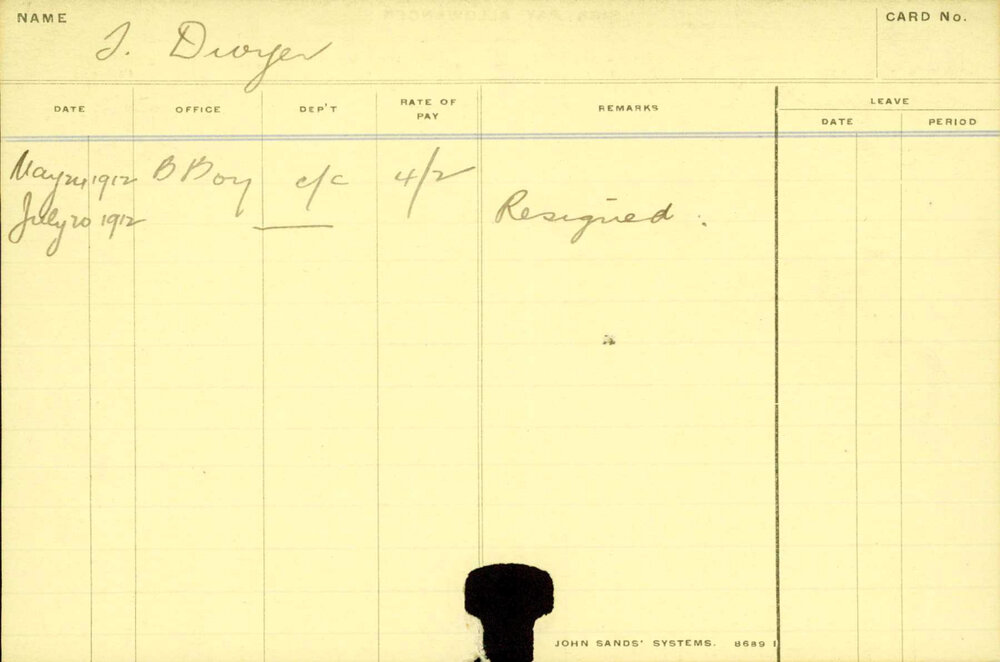 NAME
J. Dwyer
CARD No.
DATE OFFICE DEP'T RATE OF PAY REMARKS LEAVE
DATE PERIOD
May 24 1912 B Boy c/c 4/2
July 20 1912 Resigned.
JOHN SANDS' SYSTEMS. 8689